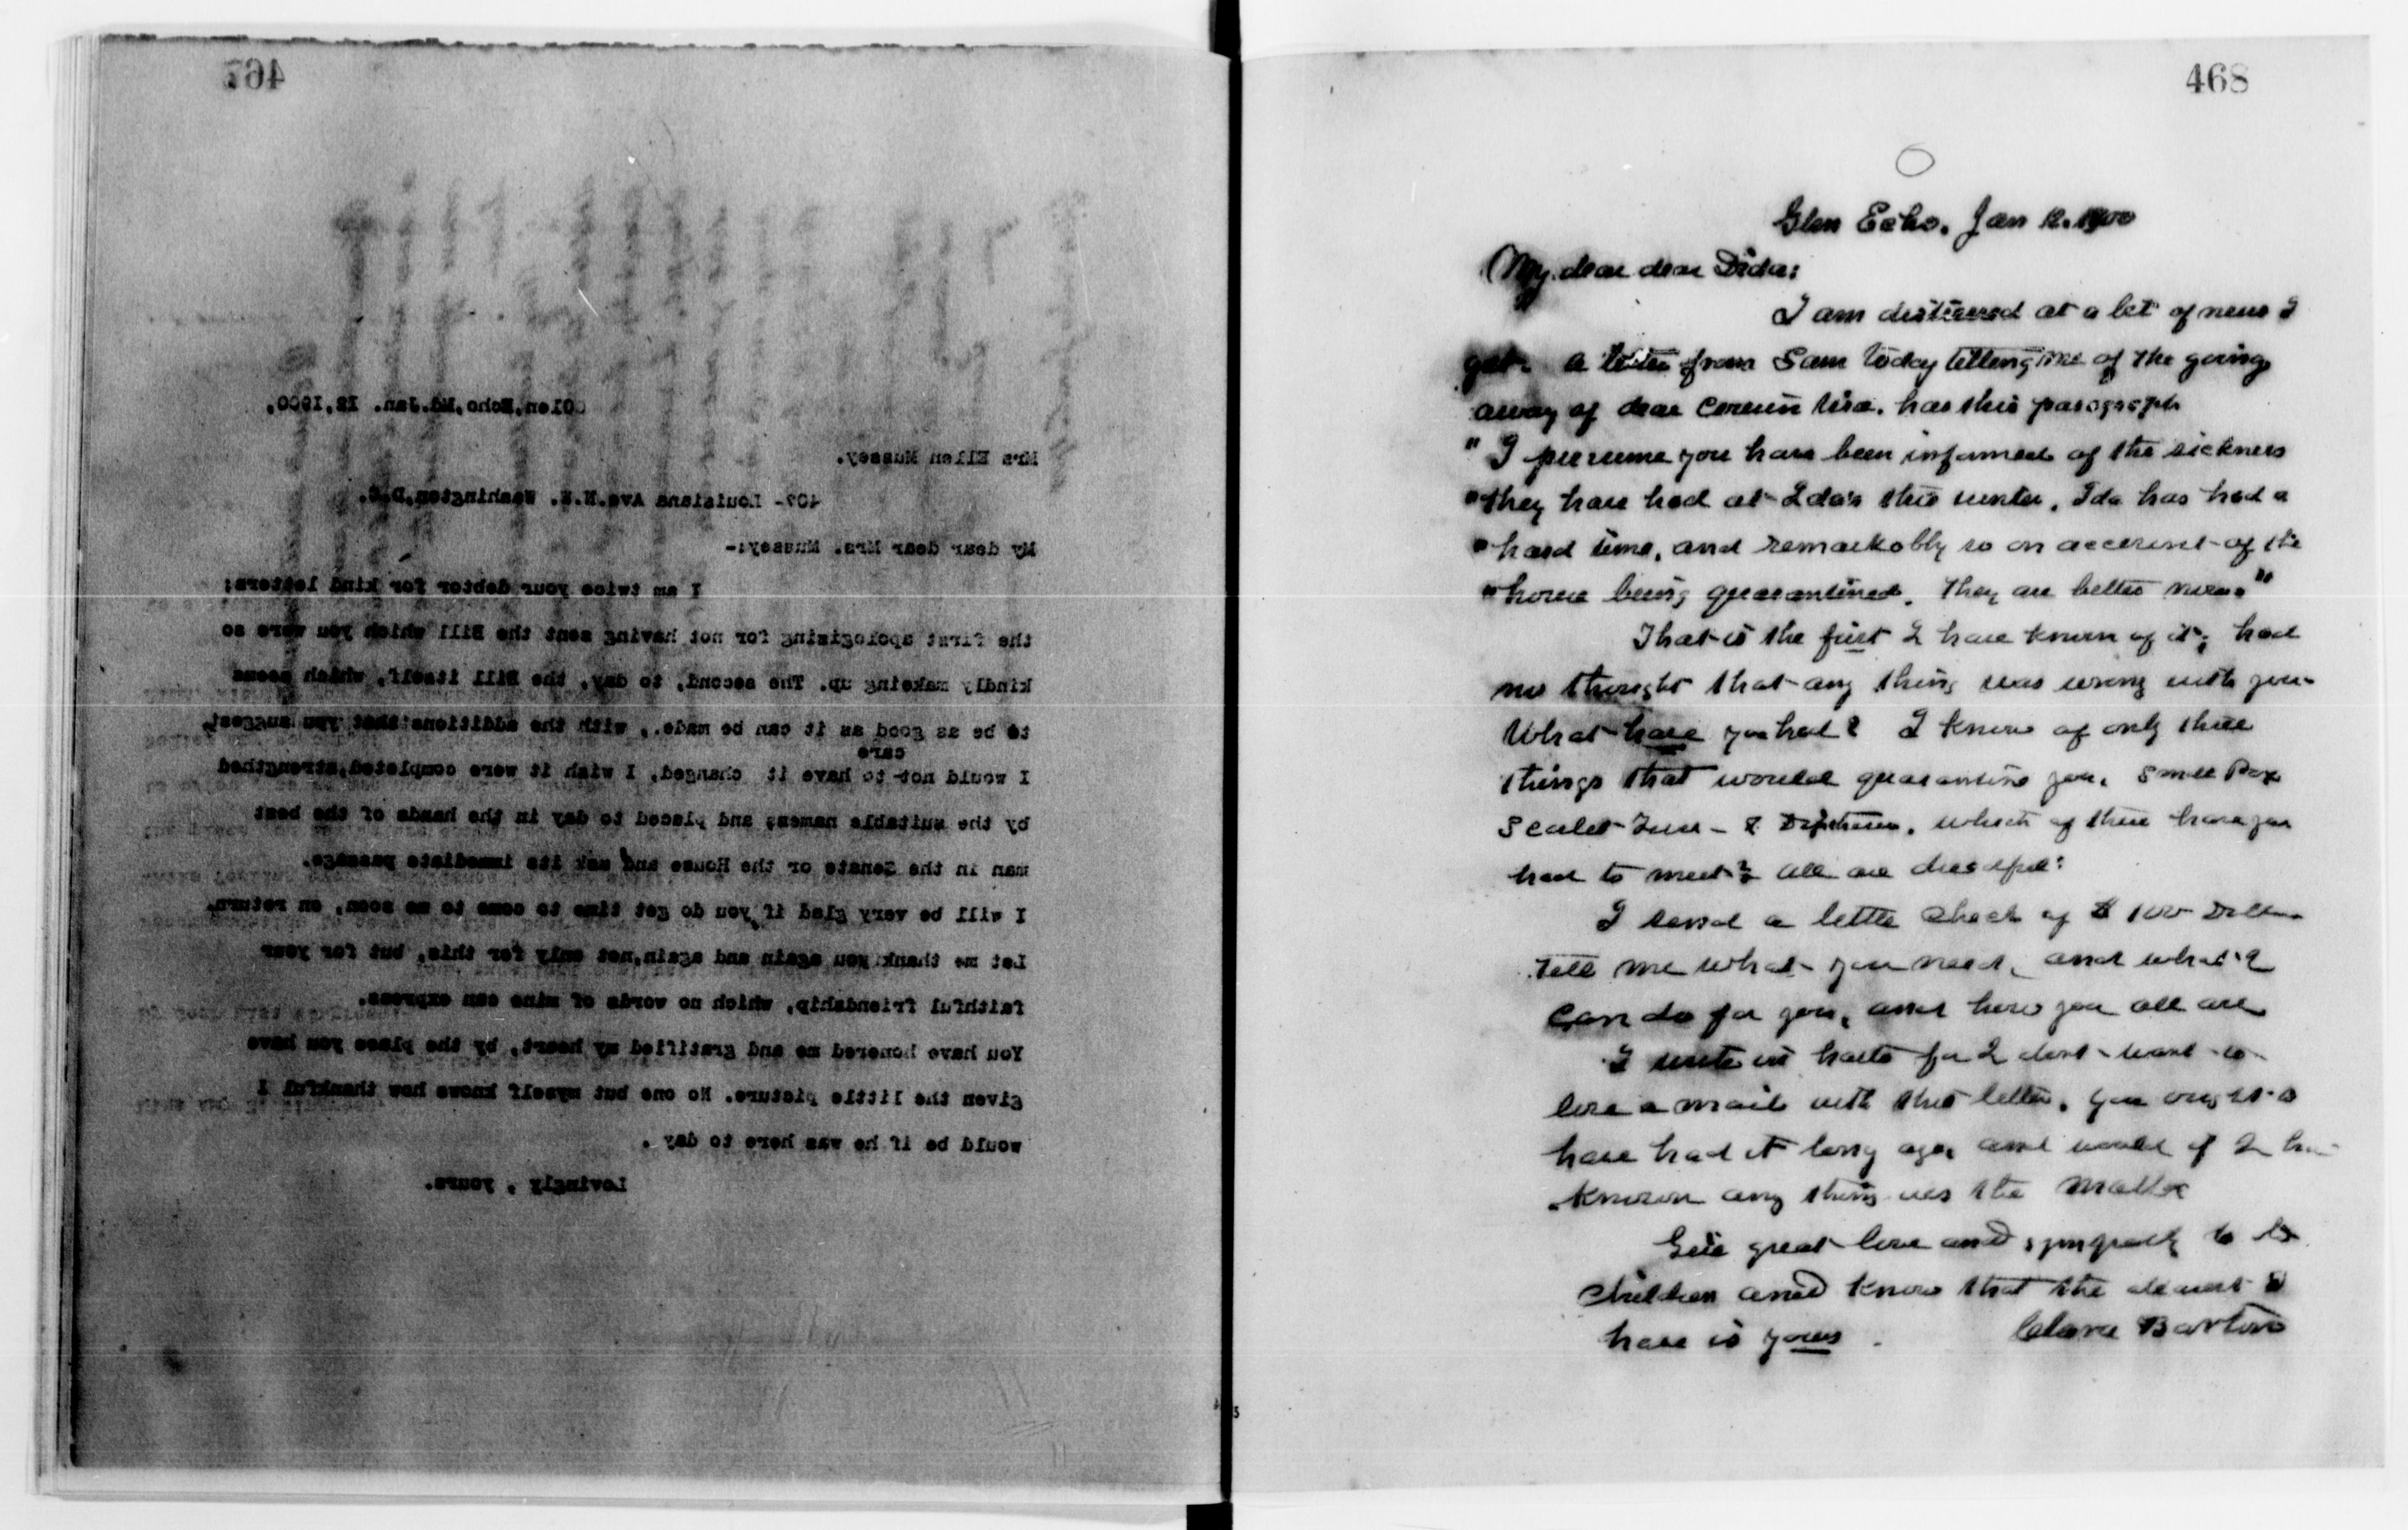 467
Glen,Echo,Md.Jan. 12,1900,
Mrs Ellen Mussey.
407- Louisiana Ave.N.W. Washington,D.C.
My dear dear Mrs. Mussey:-
I am twice your debtor for kind letters;
the first apologizing for not having sent the Bill which you were so
kindly makeing up. The second, to day, the Bill itself, which seems
to be as good as it can be made., with the additions that you suggest,
care
I would not to have it changed, I wish it were completed,strengthed
by the suitable names; and placed to day in the hands of the best
man in the Senate or the House and ask its immediate passage.
I will be very glad if you do get time to come to me soon, on return.
Let me thank you again and again,not only for this, but for your
faithful friendship, which no words of mine can express.
You have honored me and gratified my heart, by the place you have
given the little picture. No one but myself knows how thankful I
would be if he was here to day .
Lovingly , yours.
468
Glen Echo. Jan 12. 1900
My dear dear Ida:
I am distressed at a bit of news I
get. a letter from Sam today telling me of the going
away of dear Cousin . has this paragraph
" I presume you have been informed of the sickness
"they have had at Ida's this winter. Ida has had a
"hard time, and remarkobly so on account of the
"house being quarantined. They are better now."
That is the first I have known of it; had
no thought that any thing was wrong with you.
What have you had? I know of only three
things that would quarantine you. Small Pox
Scarlet Fever - & Diptheria. which of these have you
had to meet? all are dreadful:
I send a little check of $100 Dollars
tell me what you need, and what I
can do for you, and how you all are
I write in haste for I dont want to
lose a mail with this letter. you ought to
have had it long ago, and would if I had
known any thing was the matter
Give great love and sympathy to
children and know that the dearest I
have is yours . Clara Barton